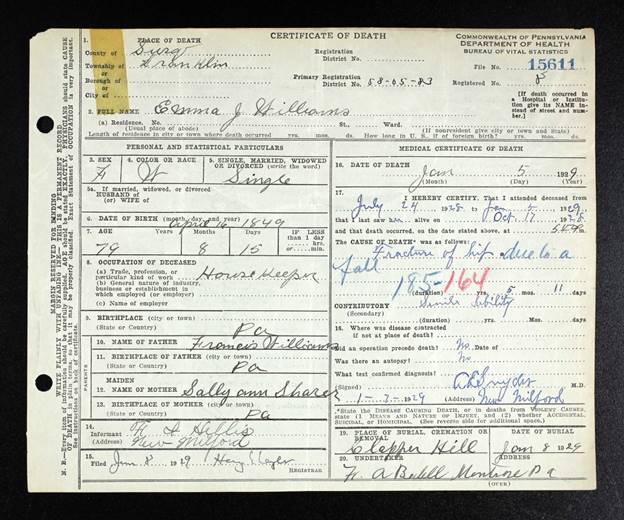 CERTIFICATE OF DEATH
COMMONWEALTH OF PENNSYLVANIA
DEPARTMENT OF HEALTH
BUREAU OF VITAL STATISTICS
1. PLACE OF DEATH
County of Susq
Township of Franklin
or
Borough of
or
City of
Registration District No.
Primary Registration District No. 58-05-83
File No. 15611
Registered No. 8
[If death occurred in a Hospital or Institution give its NAME instead of street and number.]
2. FULL NAME Emma J Williams
(a) Residence. No. St. Ward.
(Usual place of abode) (If nonresident give city or town and State)
Length of residence in city or town where death occurred yrs. mos. ds. How long in U. S., if of foreign birth? yrs. mos. ds.
PERSONAL AND STATISTICAL PARTICULARS
3. SEX F
4. COLOR OR RACE W
5. SINGLE, MARRIED, WIDOWED OR DIVORCED (write the word) Single
5a. If married, widowed, or divorced
HUSBAND of
(or) WIFE of
6. DATE OF BIRTH April 16 1849
7. AGE Years Months Days IF LESS than 1 day hrs. or min.
79 8 15
8. OCCUPATION OF DECEASED
(a) Trade, profession, or particular kind of work House Keeper
(b) General nature of industry, business or establishment in which employed (or employer)
(c) Name of employer
9. BIRTHPLACE Pa
(State or Country)
PARENTS
10. NAME OF FATHER Francis Williams
11. BIRTHPLACE OF FATHER Pa
(State or Country)
12. MAIDEN NAME OF MOTHER Sally Ann Sharer
13. BIRTHPLACE OF MOTHER Pa
(State or Country)
14. Informant
(Address) New Milford
15. Filed Jan 8 1929
Registrar
MEDICAL CERTIFICATE OF DEATH
16. DATE OF DEATH Jan 5 1929
(Month) (Day) (Year)
17. I HEREBY CERTIFY, That I attended deceased from
July 24 1928 to Jan 5 1929
that I last saw her alive on Oct 17 1928
and that death occurred, on the date stated above, at
The CAUSE OF DEATH* was as follows:
Fracture of hip due to a
fall
185-164
(duration) yrs. 5 mos. 11 days
CONTRIBUTORY Senile
(Secondary)
(duration) yrs. mos. ds.
18. Where was disease contracted
if not at place of death?
Did an operation precede death? No Date of
Was there an autopsy? No
What test confirmed diagnosis?
(Signed) A E Snyder M.D.
1-3-1929 New Milford
*State the DISEASE CAUSING DEATH, or in deaths from VIOLENT CAUSES, state (1) MEANS AND NATURE OF INJURY, and (2) whether ACCIDENTAL, SUICIDAL, or HOMICIDAL. (See reverse side for additional space.)
19. PLACE OF BURIAL, CREMATION OR REMOVAL DATE OF BURIAL
Clapper Hill Jan 8 1929
20. UNDERTAKER ADDRESS
F. A Montrose Pa
(OVER)
MARGIN RESERVED FOR BINDING
WRITE PLAINLY WITH UNFADING INK—THIS IS A PERMANENT RECORD